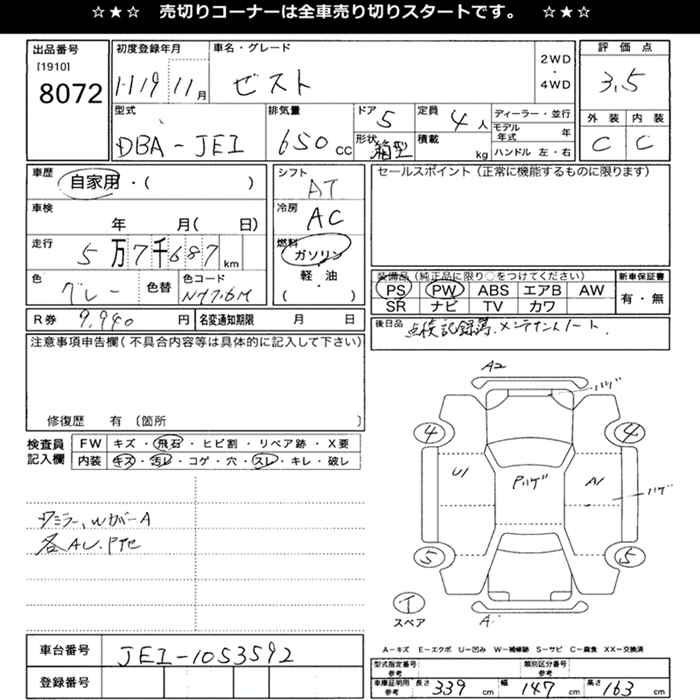 ☆★☆ 売切りコーナーは全車売り切りスタートです。 ☆★☆
出品番号 初度登録年月 車名・グレード 評価点
[1910] 2WD
8072 H19 11月 ゼスト ・ 3.5
4WD
型式 排気量 ドア 5 定員 4人 ディーラー・並行 外装 内装
DBA-JE1 650cc 形状 箱型 積載 kg モデル年式 年 C C
ハンドル 左・右
車歴 シフト セールスポイント(正常に機能するものに限ります)
自家用・( ) AT
車検 冷房
年 月( 日) AC
走行 燃料
5万7千687km ガソリン
色 色替 色コード 軽・油 装備品(純正品に限り○をつけてください) 新車保証書
グレー NH7.6M ( ) PS PW ABS エアB AW 有・無
SR ナビ TV カワ
R券 9,940円 名変通知期限 月 日 後日品 点検記録簿、メンテナンスノート.
注意事項申告欄(不具合内容等は具体的に記入して下さい)
修復歴 有 (箇所 )
検査員 FW キズ・飛石・ヒビ割・リペア跡・X要
記入欄 内装 キズ・汚レ・コゲ・穴・スレ・キレ・破レ
A2
ハゲ
4 4
U1 Pハゲ A1
ハゲ
5 5
T
スペア
A
各AU.P他
車台番号 JE1-1053592
登録番号
A-キズ E-エクボ U-凹み W-補修跡 S-サビ C-腐食 XX-交換済
型式指定番号 参考 類別区分番号 参考
車庫証明用 参考 長さ 339cm 幅 147cm 高さ 163cm